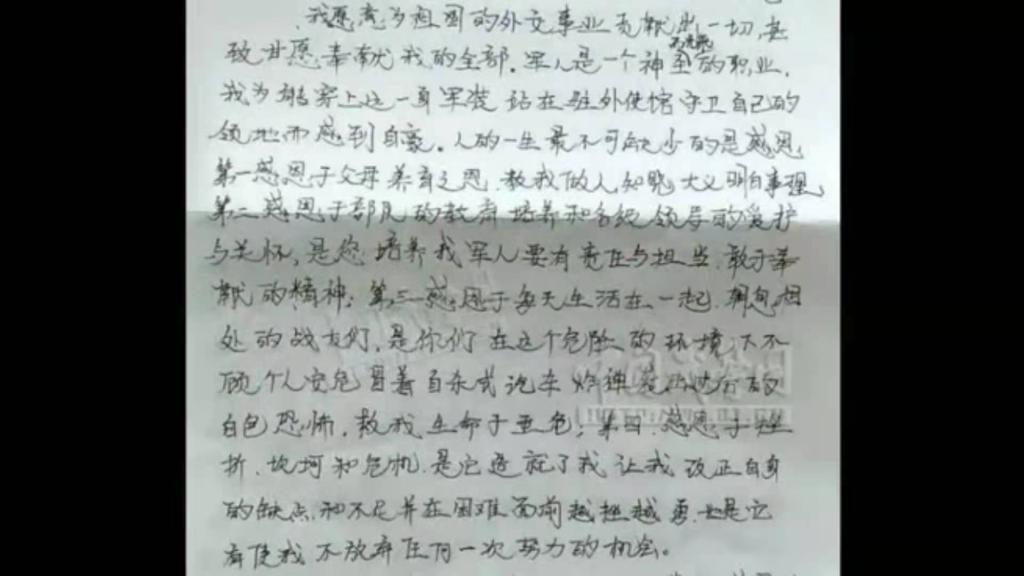 我愿意为祖国的外交事业贡献出一切,甚
致甘愿奉献我的全部。军人是一个神圣的职业,
我为能穿上这一身军装站在驻外使馆守卫自己的
领地而感到自豪。人的一生最不可缺少的是感恩
第一感恩于父母养育之恩,教我做人知晓大义明白事理
第二感恩于部队的教育培养和各级领导的爱护
与关怀,是您培养我军人要有责任与担当,敢于奉
献的精神;第三感恩于每天生活在一起,朝夕相
处的战友们,是你们在这个危险的环境下不
顾个人安危冒着自杀式汽车炸弹袭击
白色恐怖,救我生命于
第四,感恩于挫
折、坎坷和危机,是它造就了我,让我改正自身
的缺点和不足并在困难面前越挫越勇,也是它
有使我不放弃任何一次努力的机会。